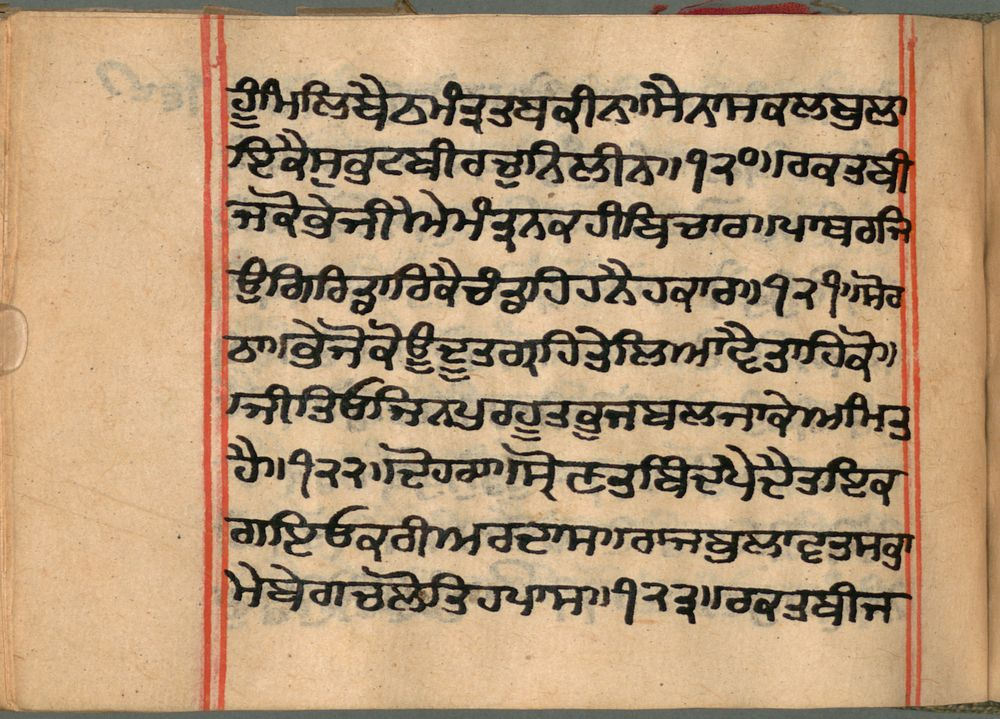 ਹੂੰਮਿਲਿਬੈਠਮੰਤ੍ਰਤਬਕੀਨਾ॥ਸੈਨਾਸਕਲਬੁਲਾ
ਇਕੈਸੁਕੁਟਬੀਰਚੁਨਿਲੀਨਾ॥੧੨੦॥ਰਕਤਬੀ
ਜਕੋਭੇਜੀਐਮੰਤ੍ਰਨਕਹੀਬਿਚਾਰ॥ਪਾਥਰਜਿ
ਉਂਗਿਰਿਡਾਰਿਕੈਚੰਡਾਹਿਹਨੈਹਕਾਰ॥੧੨੧॥ਸੋਰ
ਠਾ॥ਭੇਜੋਕੋਊਦੂਤਗ੍ਰਹਿਤੇਲਿਆਵੈਤਾਹਿਕੋ॥
ਜੀਤਿਓਜਿਨਪੁਰਹੂਤਭੂਜਬਲਜਾਕੇਅਮਿਤ
ਹੈ॥੧੨੨॥ਦੋਹਰਾ॥ਸ੍ਰੋਣਤਬਿੰਦਪੈਦੈਤਇਕ
ਗਇਓਕਰੀਅਰਦਾਸ॥ਰਾਜਬੁਲਾਵਤਸਭਾ
ਮੇਬੇਗਚਲੋਤਿਹਪਾਸ॥੧੨੩॥ਰਕਤਬੀਜ